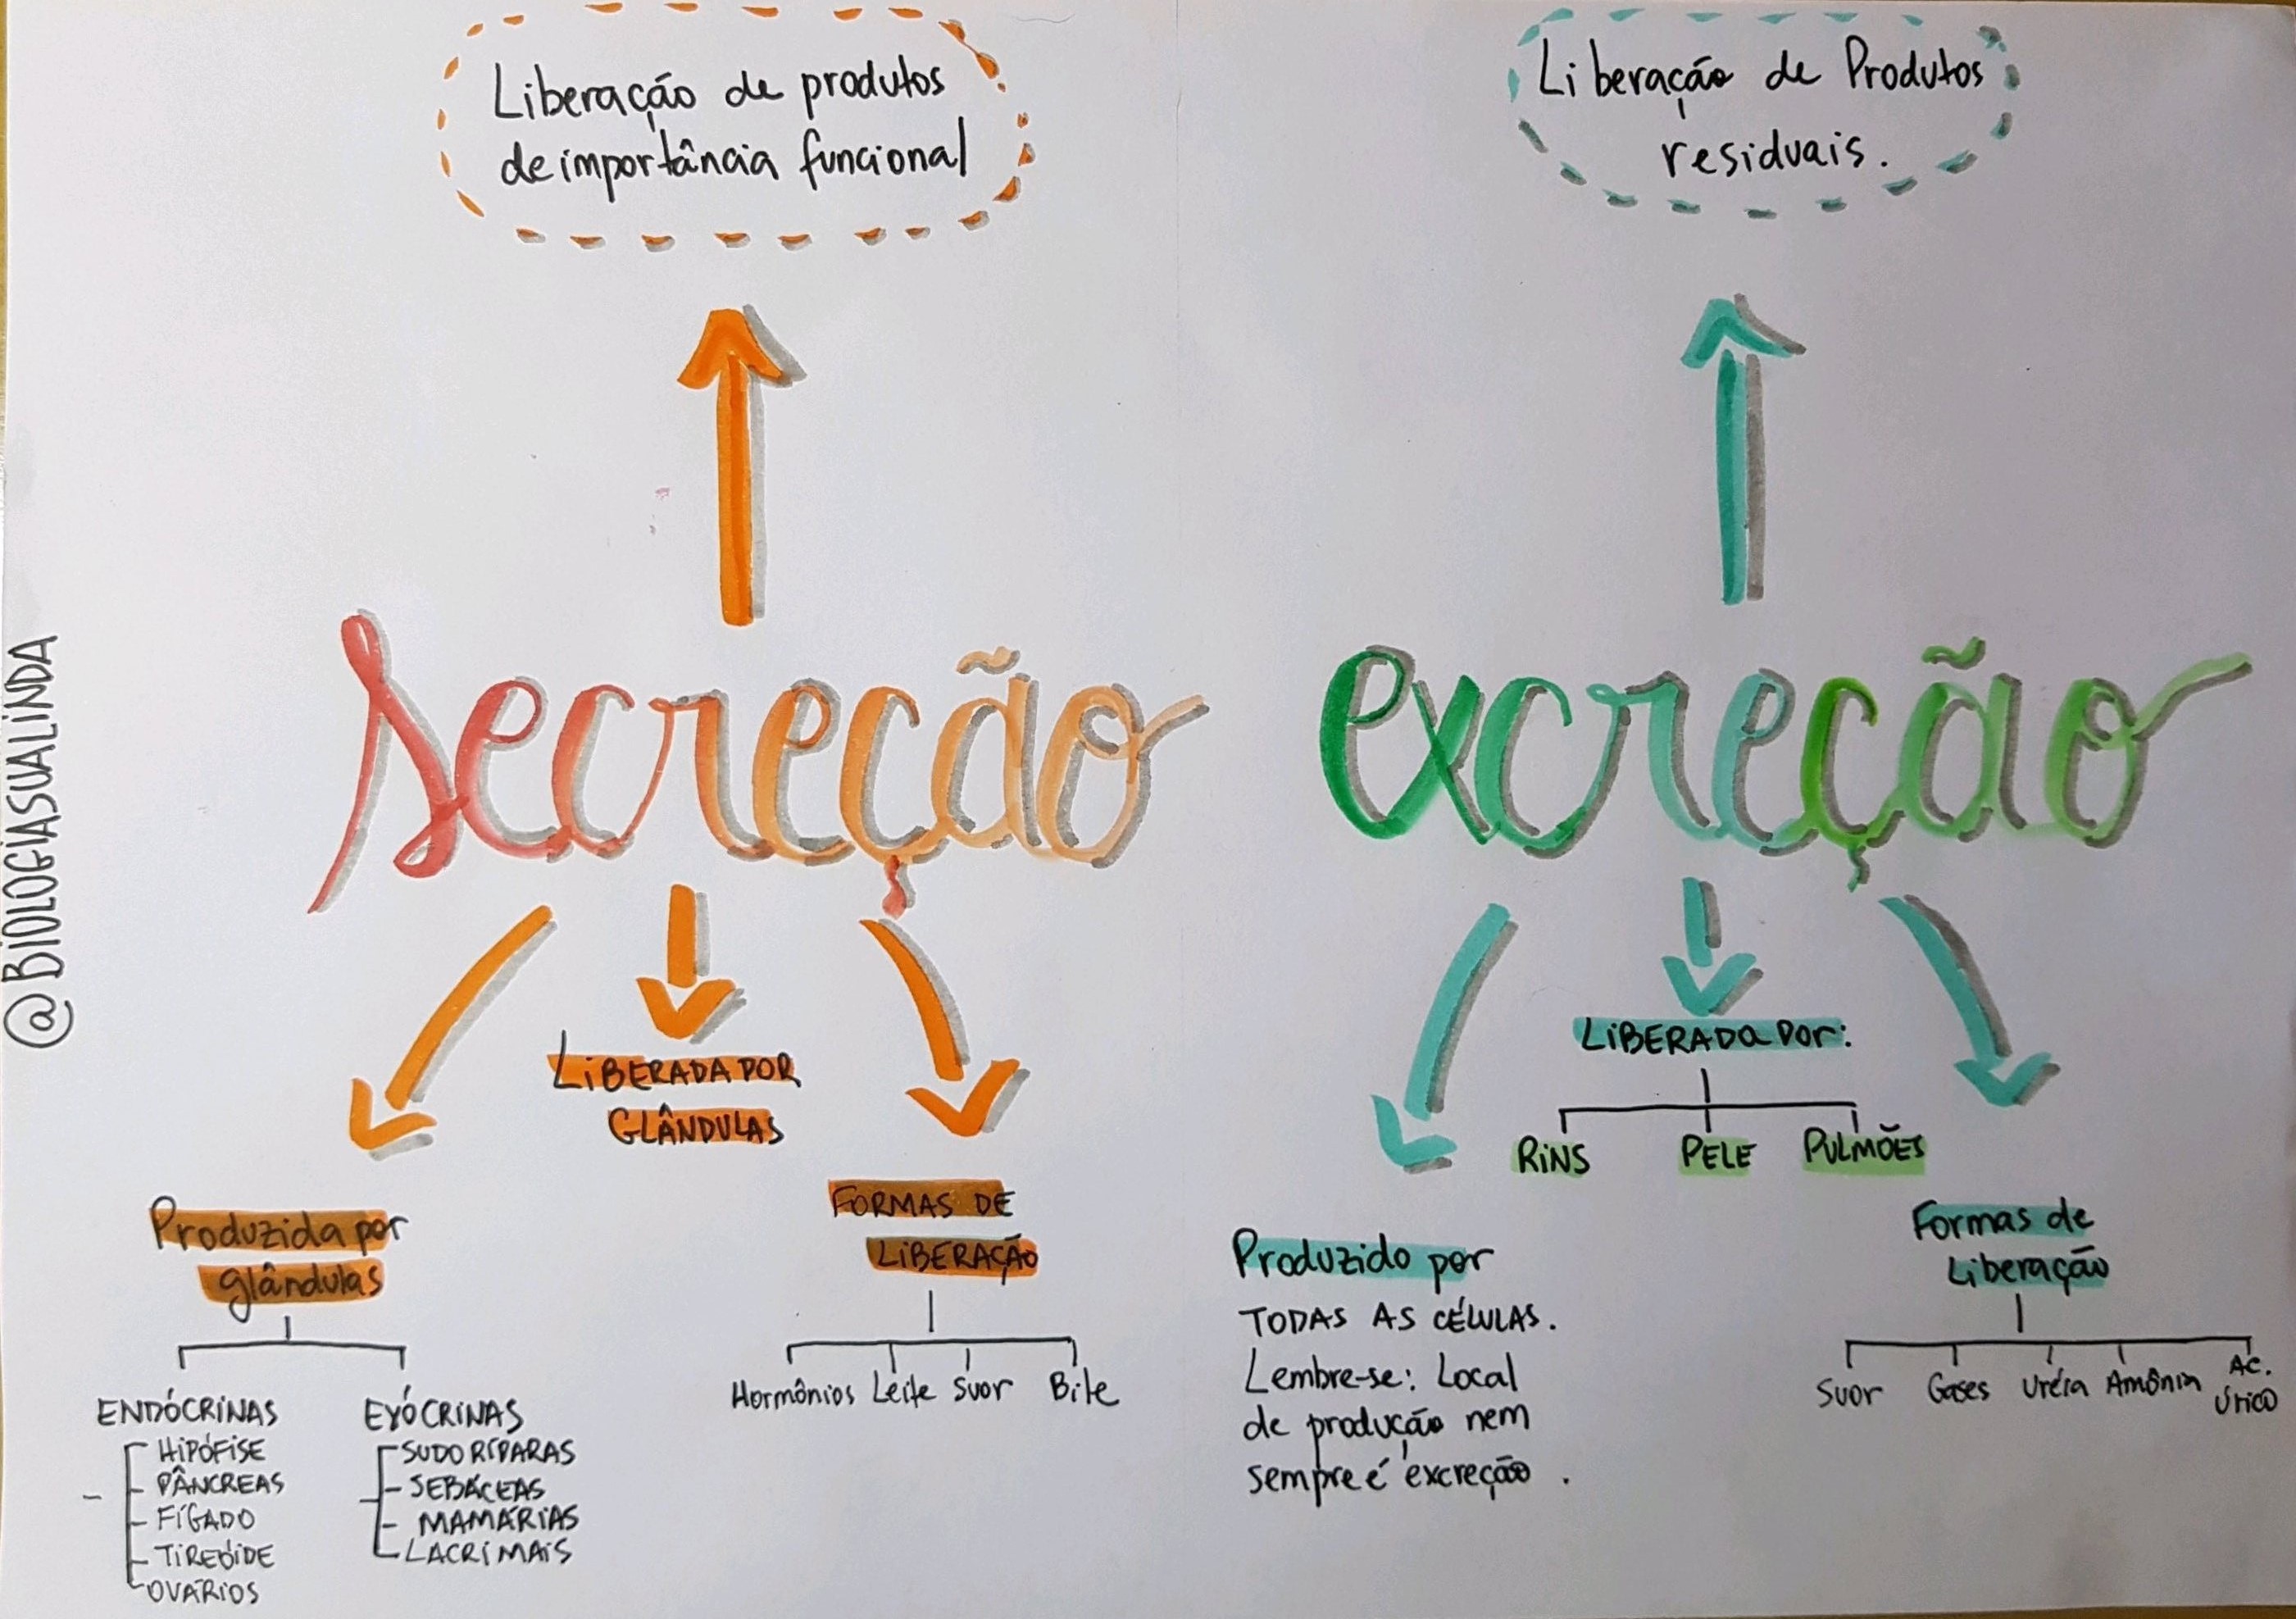 Liberação de produtos
de importância funcional
secreção
Produzida por
glândulas
ENDÓCRINAS
HIPÓFISE
PÂNCREAS
FÍGADO
TIREÓIDE
OVÁRIOS
EXÓCRINAS
SUDORÍPARAS
SEBÁCEAS
MAMÁRIAS
LACRIMAIS
LIBERADA POR
GLÂNDULAS
FORMAS DE
LIBERAÇÃO
Hormônios Leite Suor Bile
Liberação de Produtos
residuais.
excreção
Produzido por
TODAS AS CÉLULAS.
Lembre-se: Local
de produção nem
sempre é excreção.
LIBERADA POR:
RINS PELE PULMÕES
Formas de
Liberação
Suor Gases Uréia Amônia Ac.
Úrico
@BIOLOGIASUALINDA